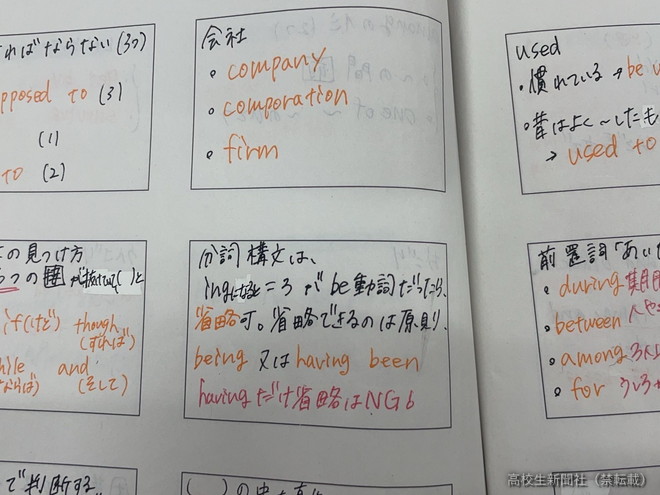 ればならない(3つ)
pposed to (3)
(1)
to (2)
会社
• company
• comporation
• firm
used
・慣れている → be u
・昔はよく〜したも
→ used to
の見つけ方
つの
if(けど) though
(すれば)
hile and
ならば) (そして)
分詞構文は、
ing = 3 が be動詞だったら、
省略可。省略できるのは原則、
being 又は having been
havingだけ省略はNG
前置詞「あいだ
• during 期間
• between 人や
• among 3人以
• for
で判断する。
高校生新聞社（禁転載）